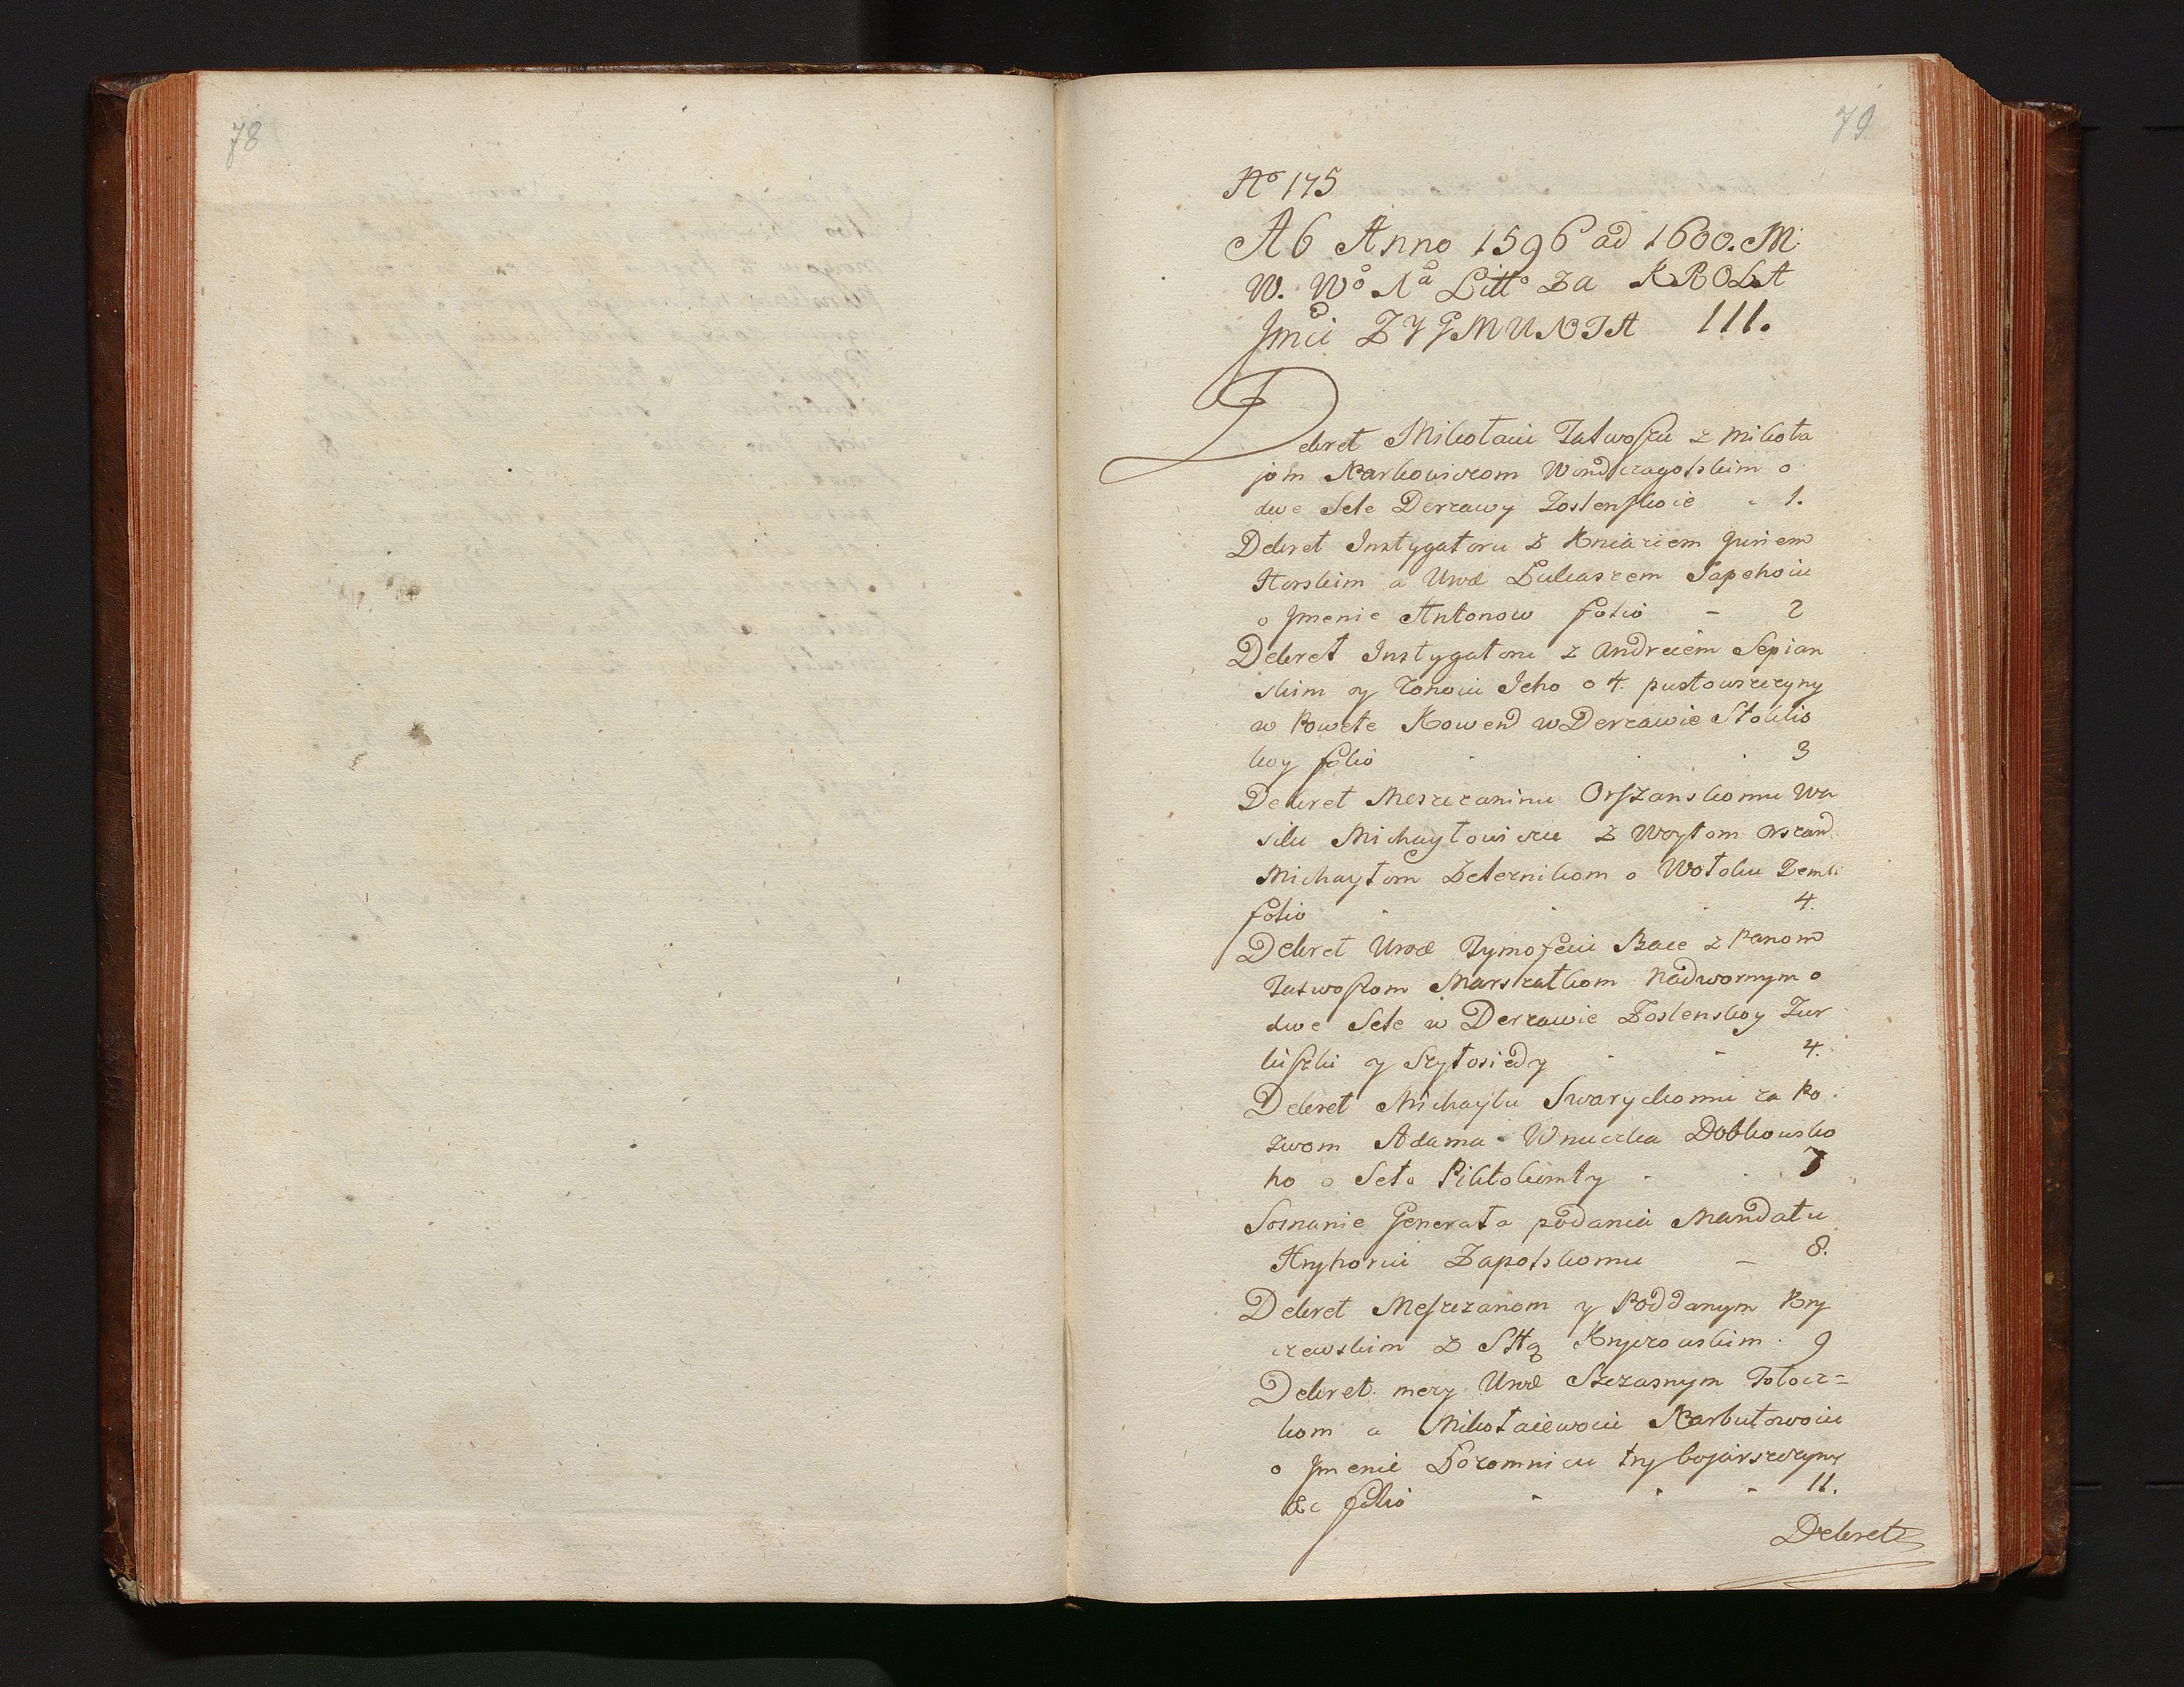 78
79
No 175
Ab Anno 1596 ad 1600. M:
W. Wo Xa Litto Za KROLA
Jmci ZYGMUNTA III.
Dekret Mikołaiu Talwoszu z Mikoła
jom Narkowiczom Wondziagolskim o
dwe Sele Derzawy Zoslenskoie - 1.
Dekret Instygatoru z Kniaziem Juriem
Horskim a Urod Łukaszem Sapehoiu
o Jmenie Antonow folio - 2
Dekret Instygatoru z Andreiem Sepian
skim y Zonoiu Jeho o 4. pustowszczyny
w Powete Kowend w Derzawie Stoklis
koy folio 3
Dekret Meszczaninu Orszanskomu Wa
silu Michayłowiczu z Woytom Orszand
Michayłom Zeleznikom o Wołoku Zemli
folio 4.
Dekret Urod Tymofeiu Bace z Panom
Talwoszom Marszałkom Nadwornym o
dwe Sele w Derzawie Zoslenskoy Żur
liszki y Szyłosiedy - 4.
Dekret Michayłu Swaryckomu za Po
zwom Adama Wnuczka Dobkowsko
ho o Seło Piktokimty 7
Soznanie Generała podania Mandatu
Hryhoriu Zapolskomu - 8.
Dekret Meszczanom y Poddanym Kry
czewskim z Sttą Kryczowskim 9
Dekret mezy Urod Szczasnym Tołocz=
kom a Mikołaiewoiu Narbutowoiu
o Jmenie Łozomnicu try bojarszczyny
&c folio 11.
Dekret